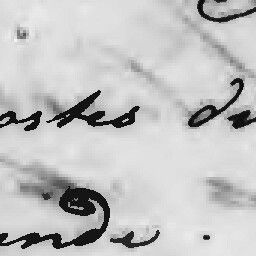 ostes du
ande.